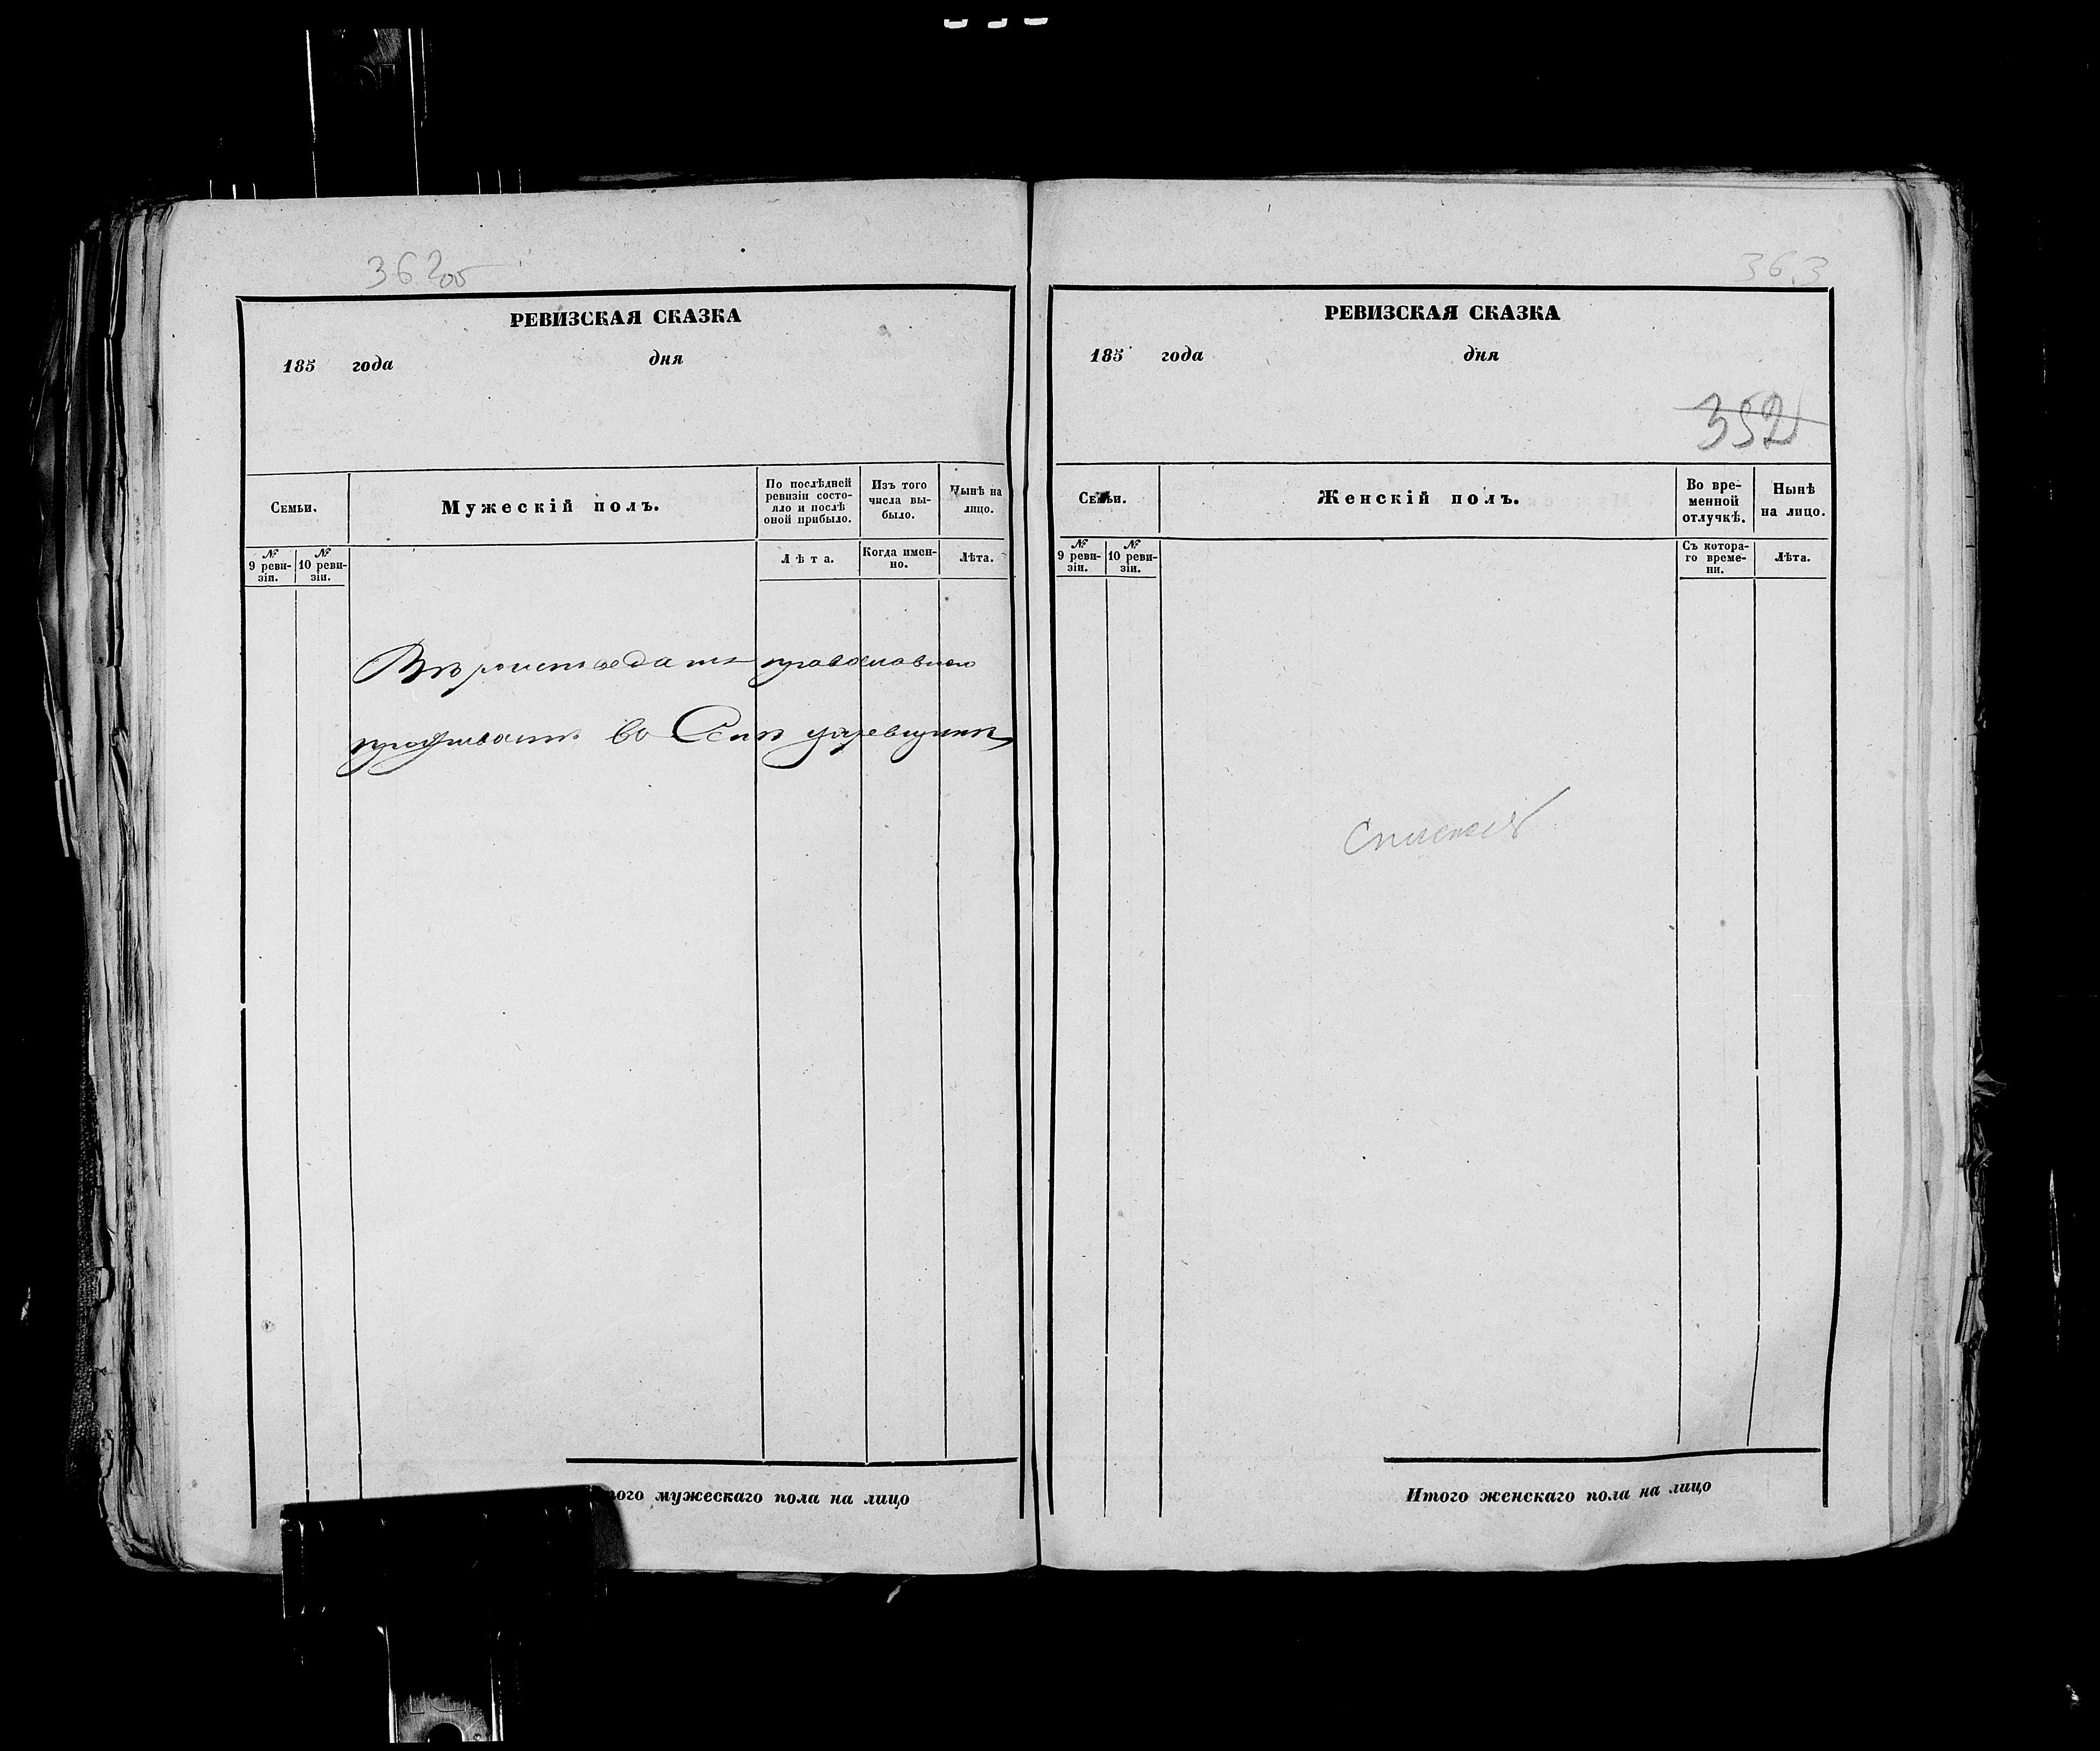 362 об
РЕВИЗСКАЯ СКАЗКА
185 года дня
Семьи.
Мужескій полъ.
По послѣдней ревизіи состо-
яло и послѣ оной прибыло.
Изъ того числа вы-
было.
Нынѣ на лицо.
№ 9 реви-
зіи.
№ 10 реви-
зіи.
Лѣта.
Когда имен-
но.
Лѣта.
православнаго
во
ого мужескаго пола на лицо
363
РЕВИЗСКАЯ СКАЗКА
185 года дня
352
Семьи.
Женскій полъ.
Во вре-
менной
отлучкѣ.
Нынѣ
на лицо.
№ 9 реви-
зіи.
№ 10 реви-
зіи.
Съ котора-
го време-
ни.
Лѣта.
Итого женскаго пола на лицо